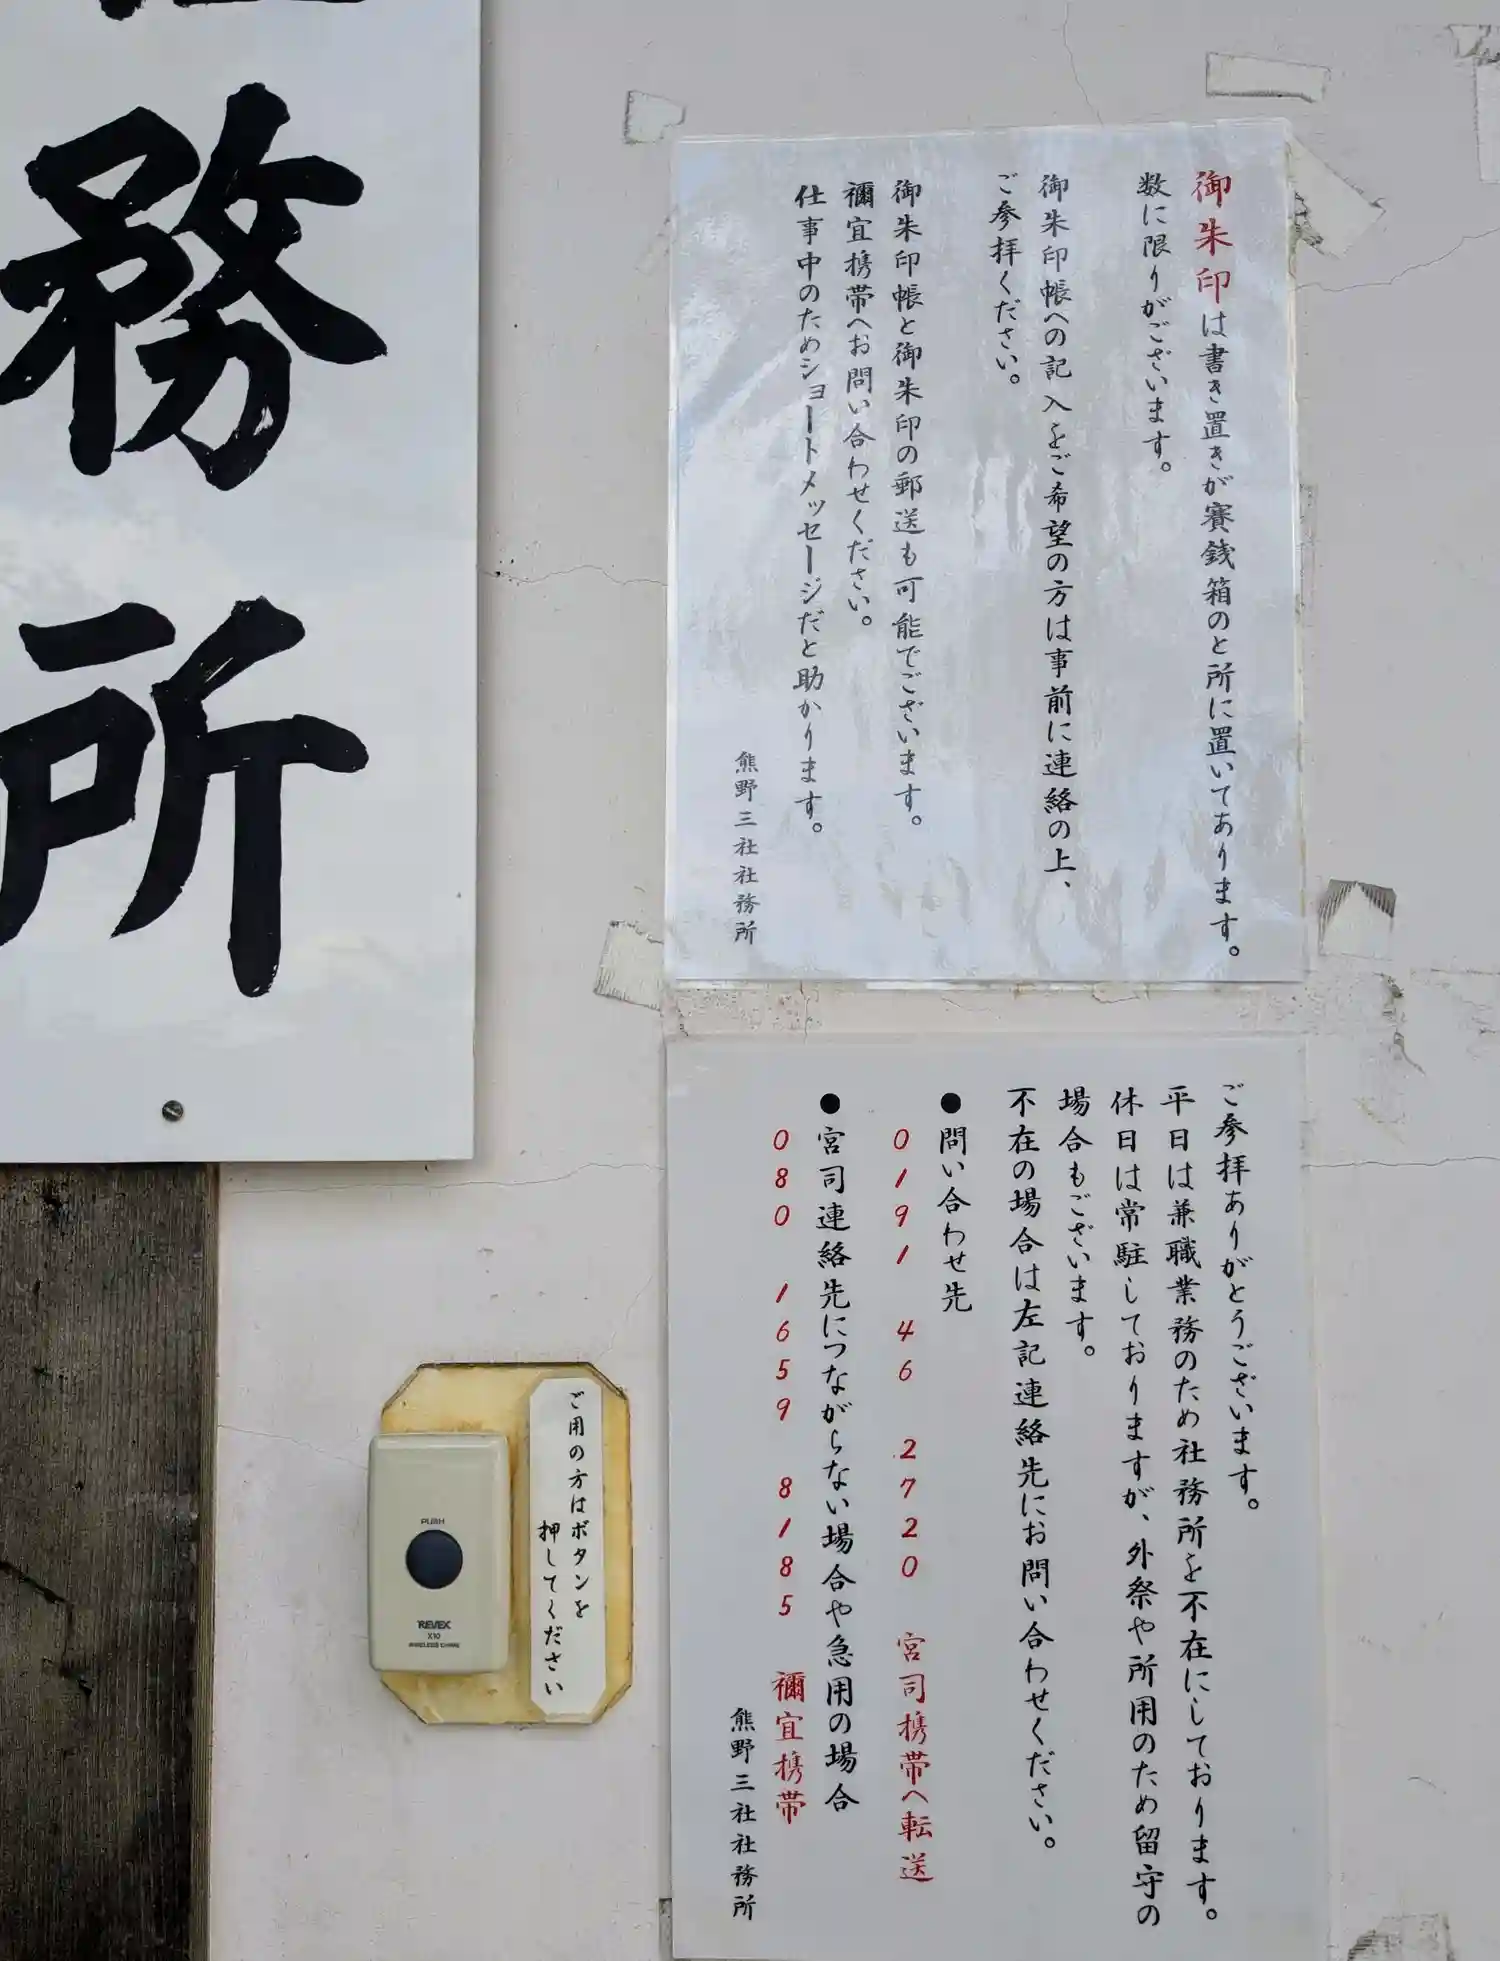 務所
御朱印は書き置きが賽銭箱のと所に置いてあります。
数に限りがございます。
御朱印帳への記入をご希望の方は事前に連絡の上、
ご参拝ください。
御朱印帳と御朱印の郵送も可能でございます。
禰宜携帯へお問い合わせください。
仕事中のためショートメッセージだと助かります。
熊野三社社務所
ご参拝ありがとうございます。
平日は兼職業務のため社務所を不在にしております。
休日は常駐しておりますが、外祭や所用のため留守の
場合もございます。
不在の場合は左記連絡先にお問い合わせください。
●問い合わせ先
0191 46 2720 宮司携帯へ転送
●宮司連絡先につながらない場合や急用の場合
080 1659 8185 禰宜携帯
熊野三社社務所
ご用の方はボタンを
押してください
PUSH
REVEX
X10
WIRELESS CHIME